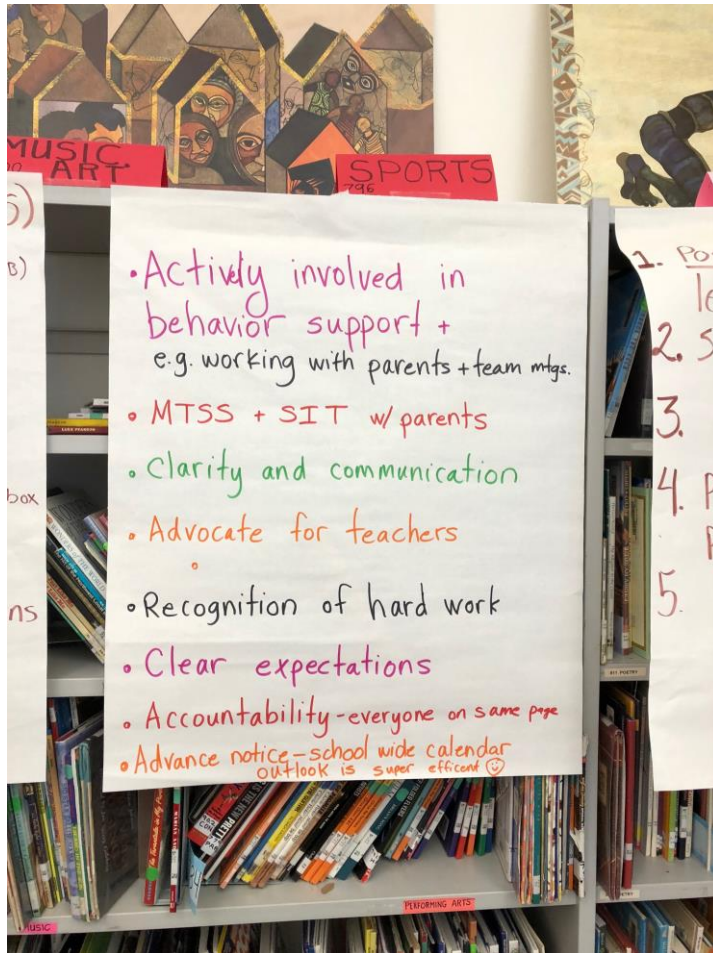 MUSIC
ART
SPORTS
796
•Actively involved in
behavior support +
e.g. working with parents + team mtgs.
• MTSS + SIT w/ parents
• Clarity and communication
• Advocate for teachers
•
•Recognition of hard work
• Clear expectations
• Accountability-everyone on same page
•Advance notice-school wide calendar
outlook is super efficent ☺
S)
B)
box
ns
1. Po
le
2. S
3.
4. P
P
5.
811 POETRY
POETRY
PERFORMING ARTS
MUSIC